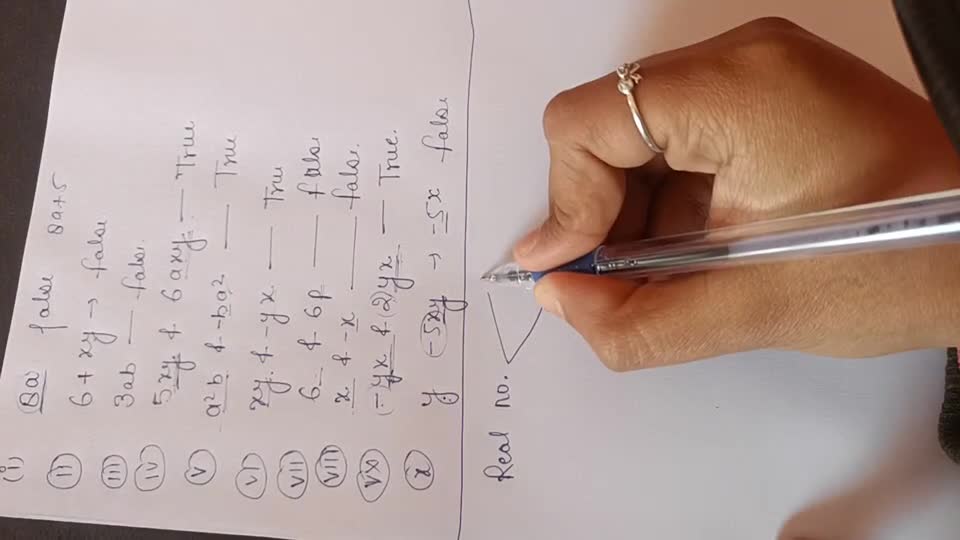 (i) 8a false 8a+5
(ii) 6 + xy → false
(iii) 3ab — false.
(iv) 5xy & 6axy. — True
(v) a²b & -ba² — True
(vi) xy. & -yx — True
(vii) 6 & 6p — false
(viii) x & -x — false.
(vx) (-yx & (2)yx — True.
(x) y. -5xy → -5x false
Real no.